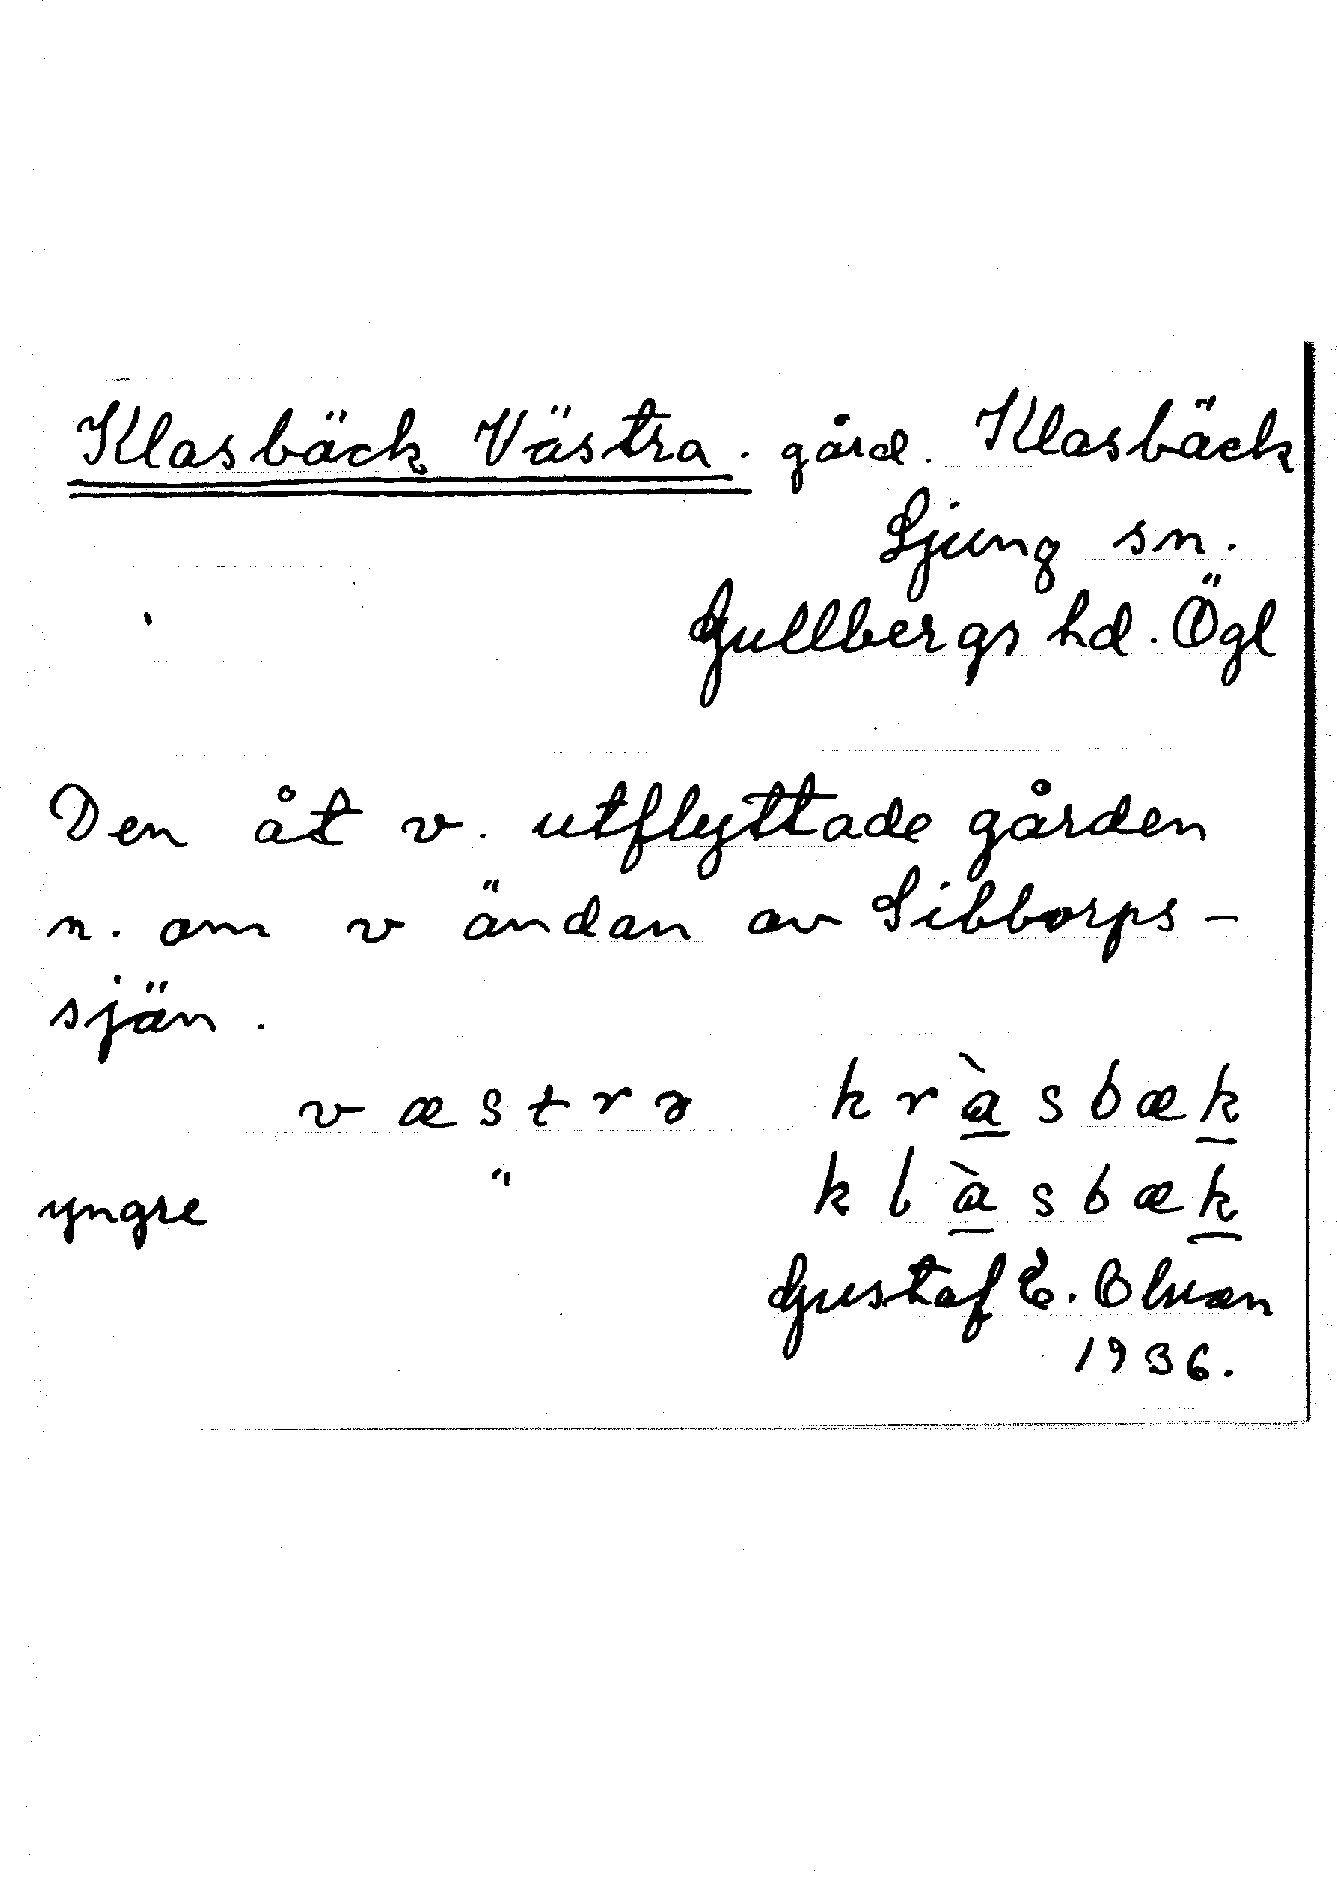 Klasbäck Västra. gård. Klasbäck
Ljung sn.
Gullbergs hd. Ögl
Den åt v. utflyttade gården
n. om v ändan av Sibborps-
sjön.
væstrə kràsbæk
yngre " klàsbæk
Gustaf E. Olsson
1936.